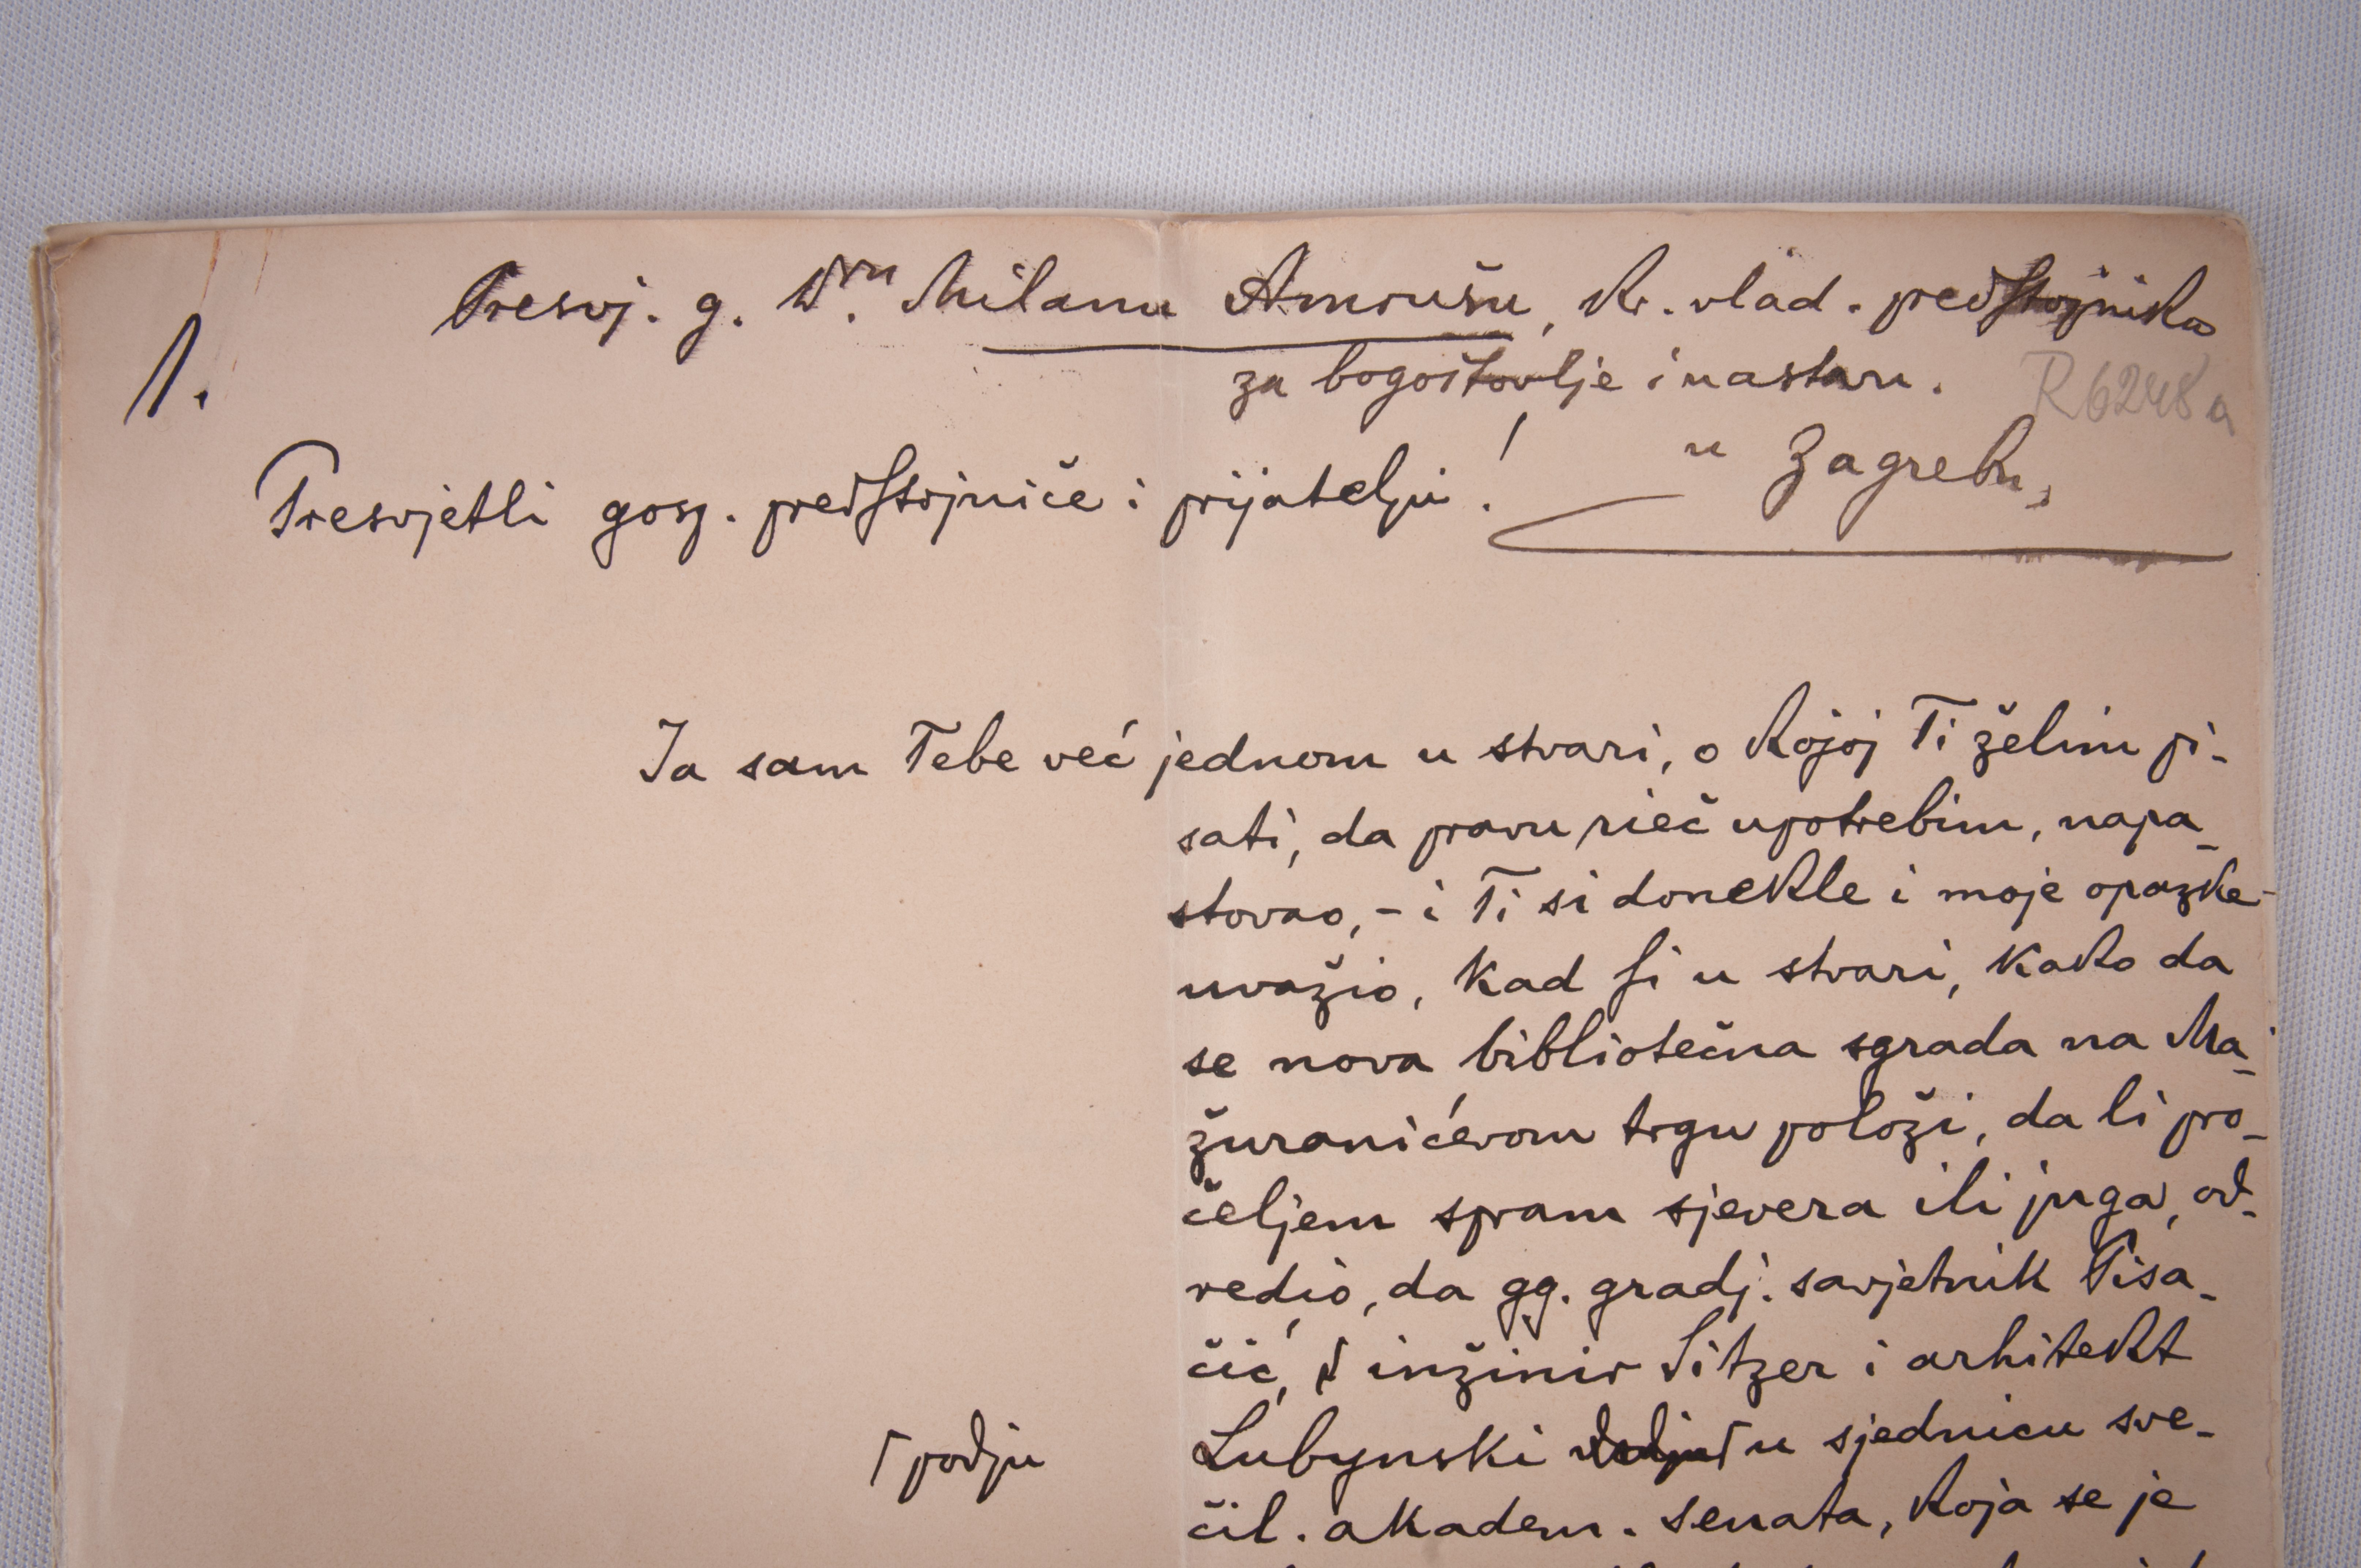 Presvj. g. Dru. Milanu Amrušu, kr. vlad. predstojnika
za bogoštovlje i nastavu.
R6248a
1.
u Zagrebu,
Presvjetli gosp. predstojniče i prijatelju!
Ja sam Tebe već jednom u stvari, o kojoj Ti želim pi-
sati, da pravu rieč upotrebim, napa-
stovao, - i Ti si donekle i moje opazke
uvažio, kad si u stvari, kako da
se nova bibliotečna sgrada na Ma-
žuranićevom trgu položi, da li pro-
čeljem spram sjevera ili juga, od-
redio, da gg. gradj. savjetnik Pisa-
čić, inžinir Sitzer i arhitekt
Lubynski u sjednicu sve-
podju
čil. akadem. senata, koja se je